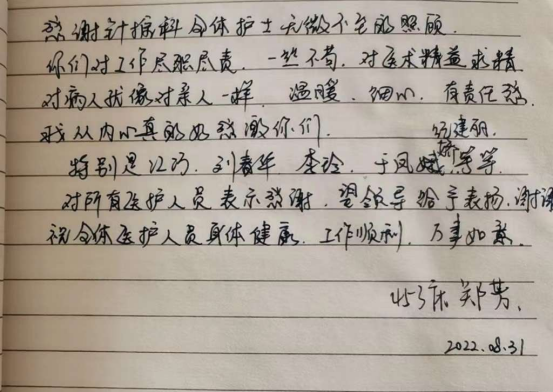 感谢针推科全体护士无微不至的照顾.
你们对工作尽职尽责,一丝不苟,对医术精益求精
对病人就像对亲人一样,温暖,细心,有责任感
我从内心真的好感激你们.
建丽.
特别是江巧,刘春华 李玲,于凤娥,等等
对所有医护人员表示感谢,望领导给予表扬,谢谢
祝全体医护人员身体健康,工作顺利,万事如意.
45床 郑芳、
2022.08.31